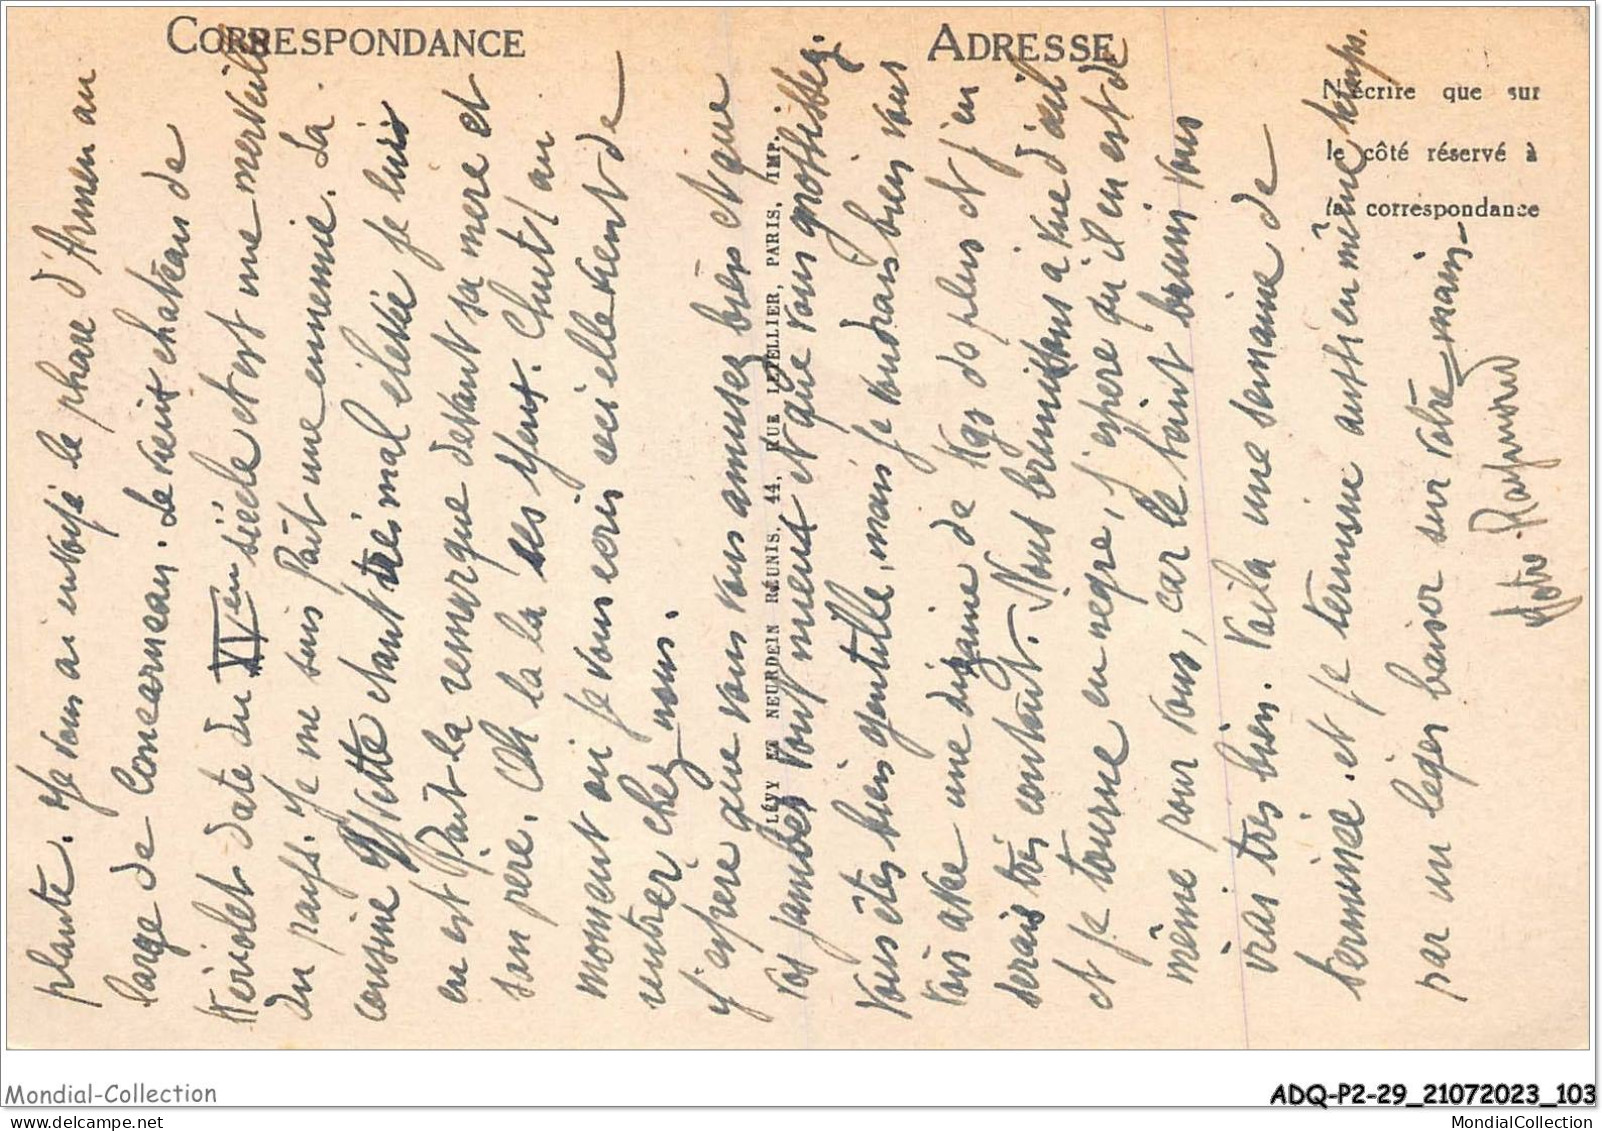 CORRESPONDANCE
ADRESSE
N'écrire que sur
le côté réservé à
la correspondance
LÉVY ET NEURDEIN RÉUNIS, 44, RUE LETELLIER, PARIS, IMP.
plante. Je vous ai envoyé le phare d'Armen au
large de Concarneau. Le vieux chateau de
Keriolet date du XVen siécle et est une merveille
du pays. Je me suis fait une ennemie. La
cousine Yvette etant très mal elevée je lui
en est fait la remarque devant sa mere et
son pere. Oh la la ses yeux. Chut! au
moment ou je vous ecris ceci elle vient de
rentrer chez nous.
J'espere que vous vous amusez bien et que
vos jambes vont mieux et que vous grossissez.
Vous êtes bien gentille, mais je voudrais bien vous
voir avec une dizaine de Kgs de plus et j'en
serais très contant. Nous brunissons a vue d'œil
et je tourne en negre, j'espere qu'il en est de
même pour vous, car le teint bruni vous
vras très bien. Voila une semaine de
terminée et je termine aussi en même temps.
par un léger baiser sur votre main
Votre Raymond
Mondial-Collection
ADQ-P2-29_21072023_103
text
MondialCollection